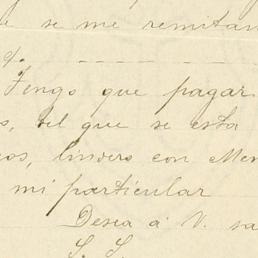 se me remitan
Tengo que pagar
s, del que se esta
os, lindero con Men
mi particular
Desea á V. sa
S. S.